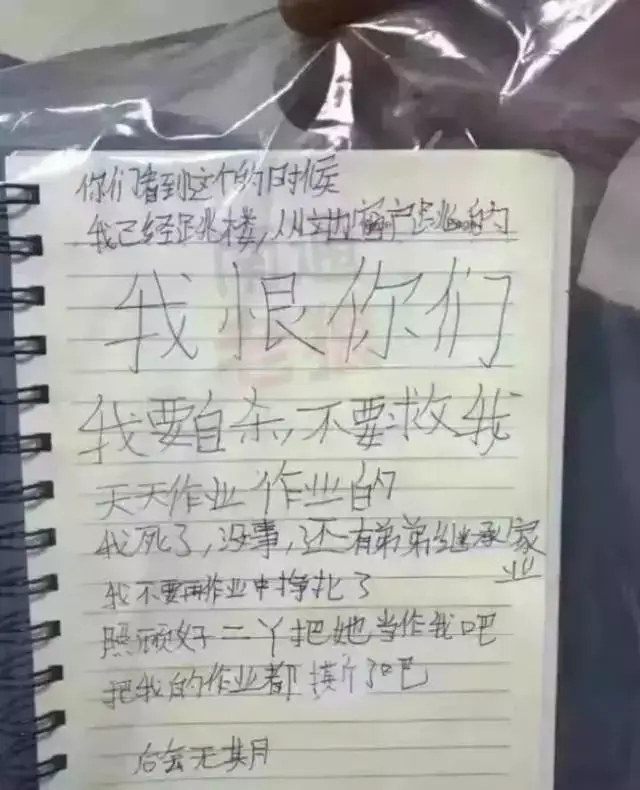 你们看到这个的时候
我已经跳楼,从窗户跳的
我恨你们
我要自杀,不要救我
天天作业作业的
我死了,没事,还有弟弟继承家业
我不要再作业中挣扎了
照顾好二丫把她当作我吧
把我的作业都了吧
后会无期